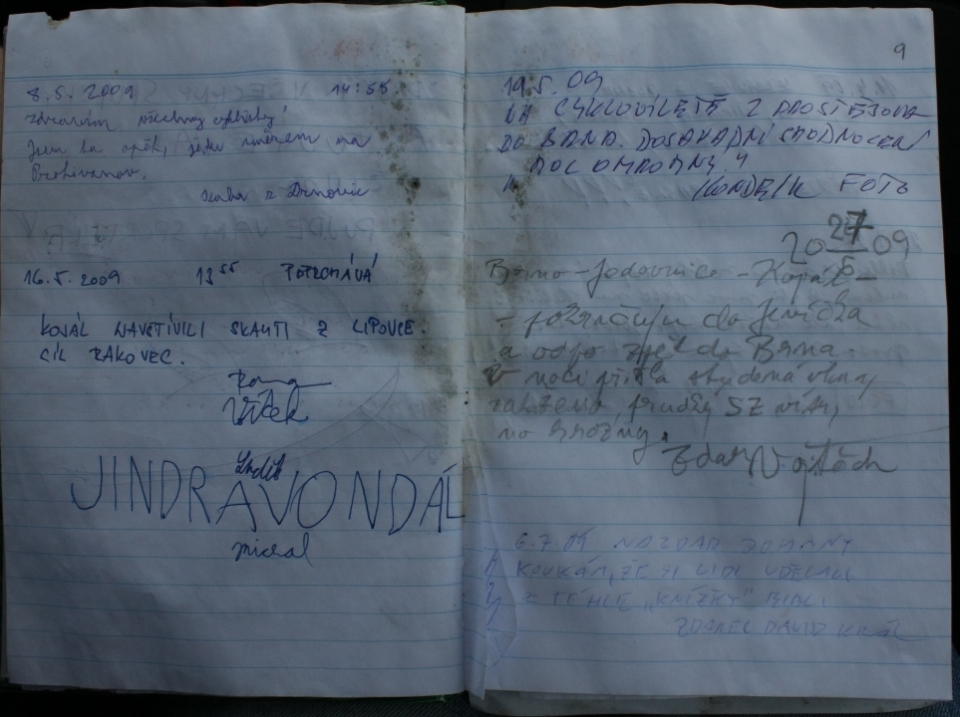 8.5. 2009 14:55
Zdravím všechny výletníky!
Jsem tu opět, jedu směrem na
z Drnovic
16.5. 2009 13 55 POTRCHÁVÁ
KOJÁL NAVŠTÍVILI SKAUTI Z LIPOVCE.
CÍL RAKOVEC.
Vítek
JINDRAVONDÁL
michal
9
19.5.09
NA CYKLOVÝLETĚ Z PROSTĚJOVA
DO BRNA. DOSAVADNÍ
FOTO
20 27 09
5
Brno - Jedovnice - Kojál -
- pokračuji do Jevíčka
a odpo zpět do Brna.
V noci přišla studená vlna,
zataženo, prudký SZ vítr,
no hrozný.
Zdar Vojtěch
6.7.09 NAZDAR
KOUKÁM, ŽE SI LIDI UDĚLALI
Z TÉHLE „KNÍŽKY" BIBLI
DAVID KRÁL